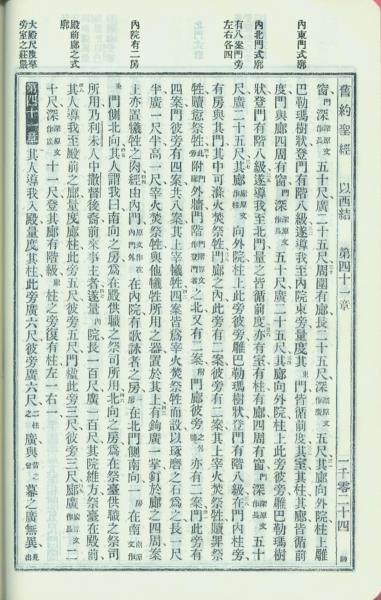 舊約聖經 以西結 第四十一章 一千零二十四
內東門式廊
窗、門深原文作長五十尺廣二十五尺周圍有廊長二十五尺深原文作廣五尺其廊向外院柱上雕
巴勒瑪樹狀登門有階八級遂導我至內院東旁量度其門皆循前度其室其柱其廊皆循前
度門與廊四周有窗門深原文作長五十尺廣二十五尺其廊向外院柱上此旁彼旁雕巴勒瑪樹
內北門式廊
狀登門有階八級遂導我至北門量之皆循前度亦有室有柱有廊四周有窗門深原文作長五十
尺廣二十五尺其廊向外院柱上此旁彼旁雕巴勒瑪樹狀登門有階八級在門內柱旁
有八案門旁左右各四
有房與其門其中可滌火焚祭牲門廊之內此旁有二案彼旁有二案其上宰火焚祭牲贖罪祭
牲贖愆祭牲附門外牆門階之北又有二案附門廊彼旁亦有二案門此旁有
四案門彼旁有四案共八案其上宰犧牲四案皆爲宰火焚祭牲而設以琢磨之石爲之長一尺
半廣一尺半高一尺宰火焚祭牲與他犧牲所用之器置於其上有鉤廣一掌釘於廊之四周案
內院有二房
上亦置犧牲之肉經由內門在內院有歌詠者之房在北門側南向一在南
門側北向其人謂我曰南向之房爲在殿供職之祭司所用北向之房爲在祭臺供職之祭司
所用乃利未人中撒督後裔前來事主者遂量院長一百尺廣一百尺其院維方祭臺在殿前
殿前廊之式廊
其人導我至殿前之廊量度廊柱此旁五尺彼旁五尺門檣此旁三尺彼旁三尺廊廣原文作長二
十尺深原文作廣十一尺登其廊有階級廊柱之旁復有柱左一右一
大殿尺度旁室之莊嚴
第四十一章 其人導我入殿量度其柱此旁廣六尺彼旁廣六尺廣與昔會幕之廣無異